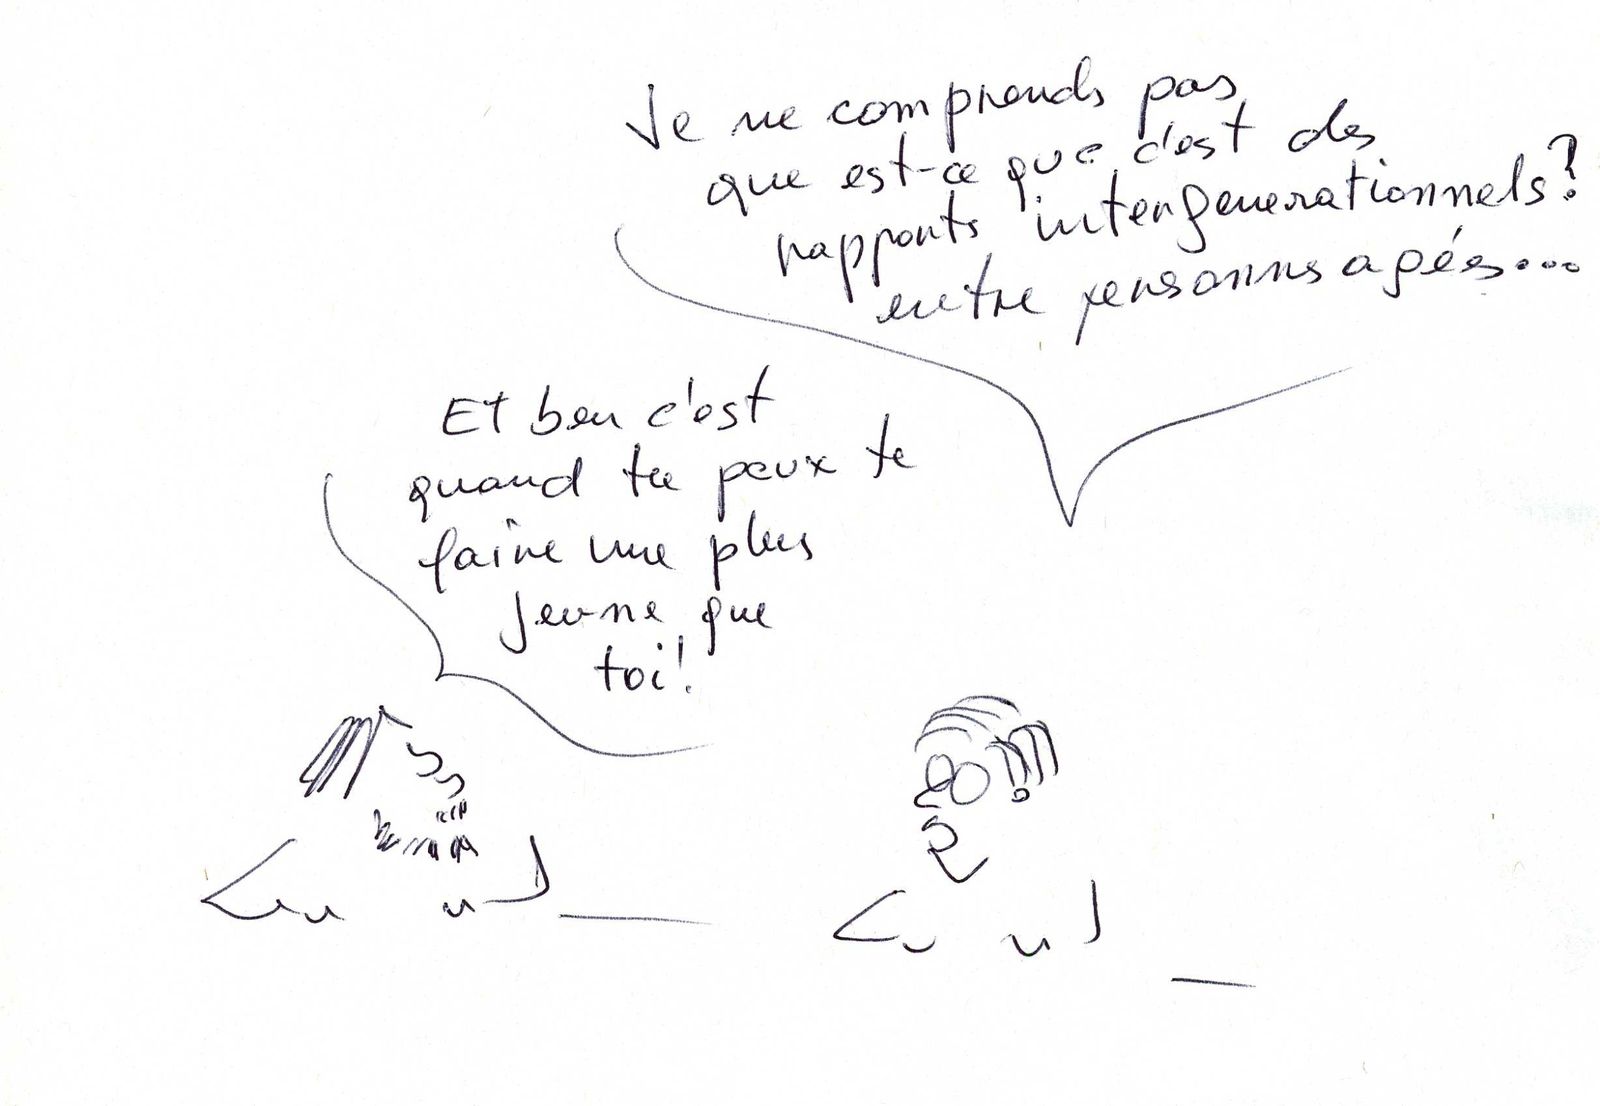 Je ne comprends pas
que est-ce que c'est des
rapports intergenerationnels?
entre personnes agées...
Et ben c'est
quand tu peux te
faire une plus
jeune que
toi!